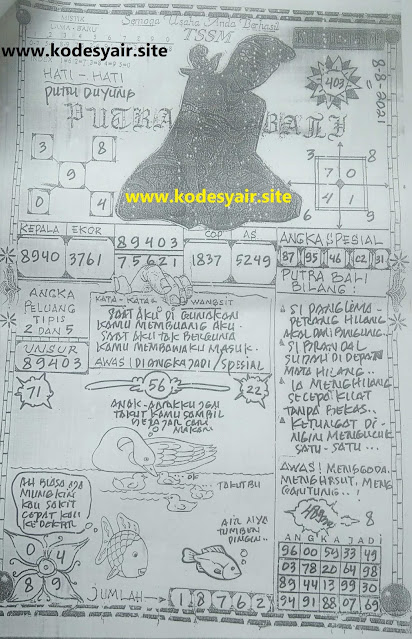 Semoga Usaha Anda Berhasil
MISTIK
LAMA - BARU
TSSM
www.kodesyair.site
HATI - HATI
PUTRI DUYUNG
403
8-8-2021
PUTRA BALI
3 8
9
0 4
3 8
7 0
4 1
6 9
www.kodesyair.site
KEPALA EKOR
8940 3761
89403
75621
COP AS
1837 5249
ANGKA SPESIAL
87 95 46 02 31
PUTRA BALI
BILANG :
ANGKA
PELUANG
TIPIS
2 DAN 5
UNSUR
89403
KATA - KATA WANGSIT
SAAT AKU DI GUNAKAN
KAMU MEMBUANG AKU.
SAAT AKU TAK BERGUNA
KAMU MEMBAWAKU MASUK.
AWAS! DIANGKA JADI/SPESIAL
71
56
22
ANAK-ANAKKU JGN
TAKUT KAMU SAMBIL
BELAJAR CARI
MAKAN
OK
TAKUT BU
SI PANGLIMA -
PERANG HILANG
AKAL DAN BINGUNG..
SI BRANDAL
SUDAH DI DEPAN
MATA HILANG..
IA MENGHILANG
SECEPAT KILAT
TANPA BEKAS..
SATU - SATU...
AWAS! MENGGODA,
MENGHASUT, MENG
GANTUNG..!
8
AH BIASA AJA
MUNGKIN
KAU SAKIT
CEPAT KAU
KE DOKTER
AIR NYA
TUMBEN
DINGIN..
0 4
8 9
JUMLAH → 1 8 7 6 2
ANGKA JADI
96 00 54 33 49
03 78 20 64 98
89 44 13 99 30
94 91 88 07 69